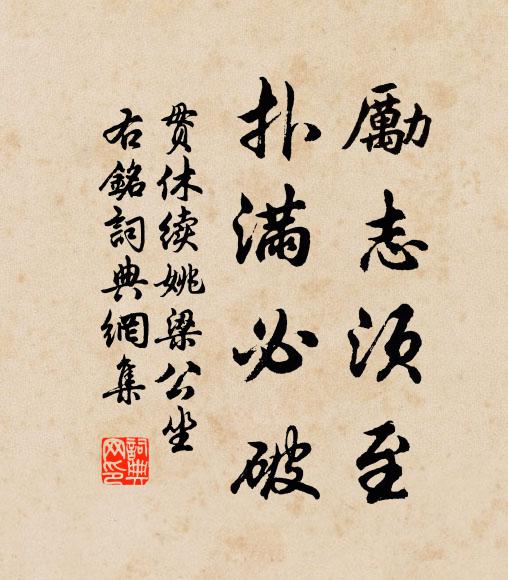 勵志須至
扑滿必破
贯休续姚梁公坐
右銘詞典網集
詞典
网印